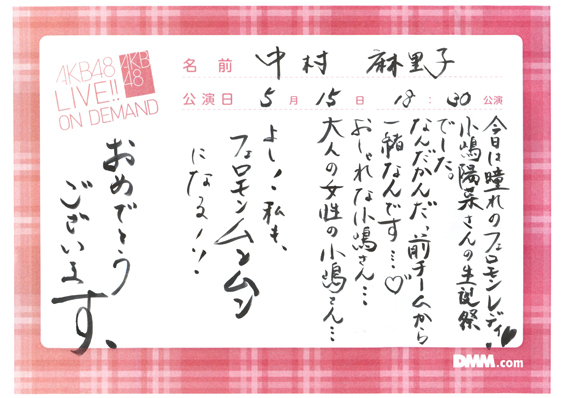 AKB48
LIVE!!
ON DEMAND
AKB
48
名前 中村 麻里子
公演日 5月 15日 18:30 公演
今日は憧れのフェロモンレディ♥
小嶋陽菜さんの生誕祭
でした。
なんだかんだ、前チームから
一緒なんです…♡
おしゃれな小嶋さん…
大人の女性の小嶋さん…
よし!私も、
フェロモンムンムン
になる!!
おめでとう
ございます。
DMM.com